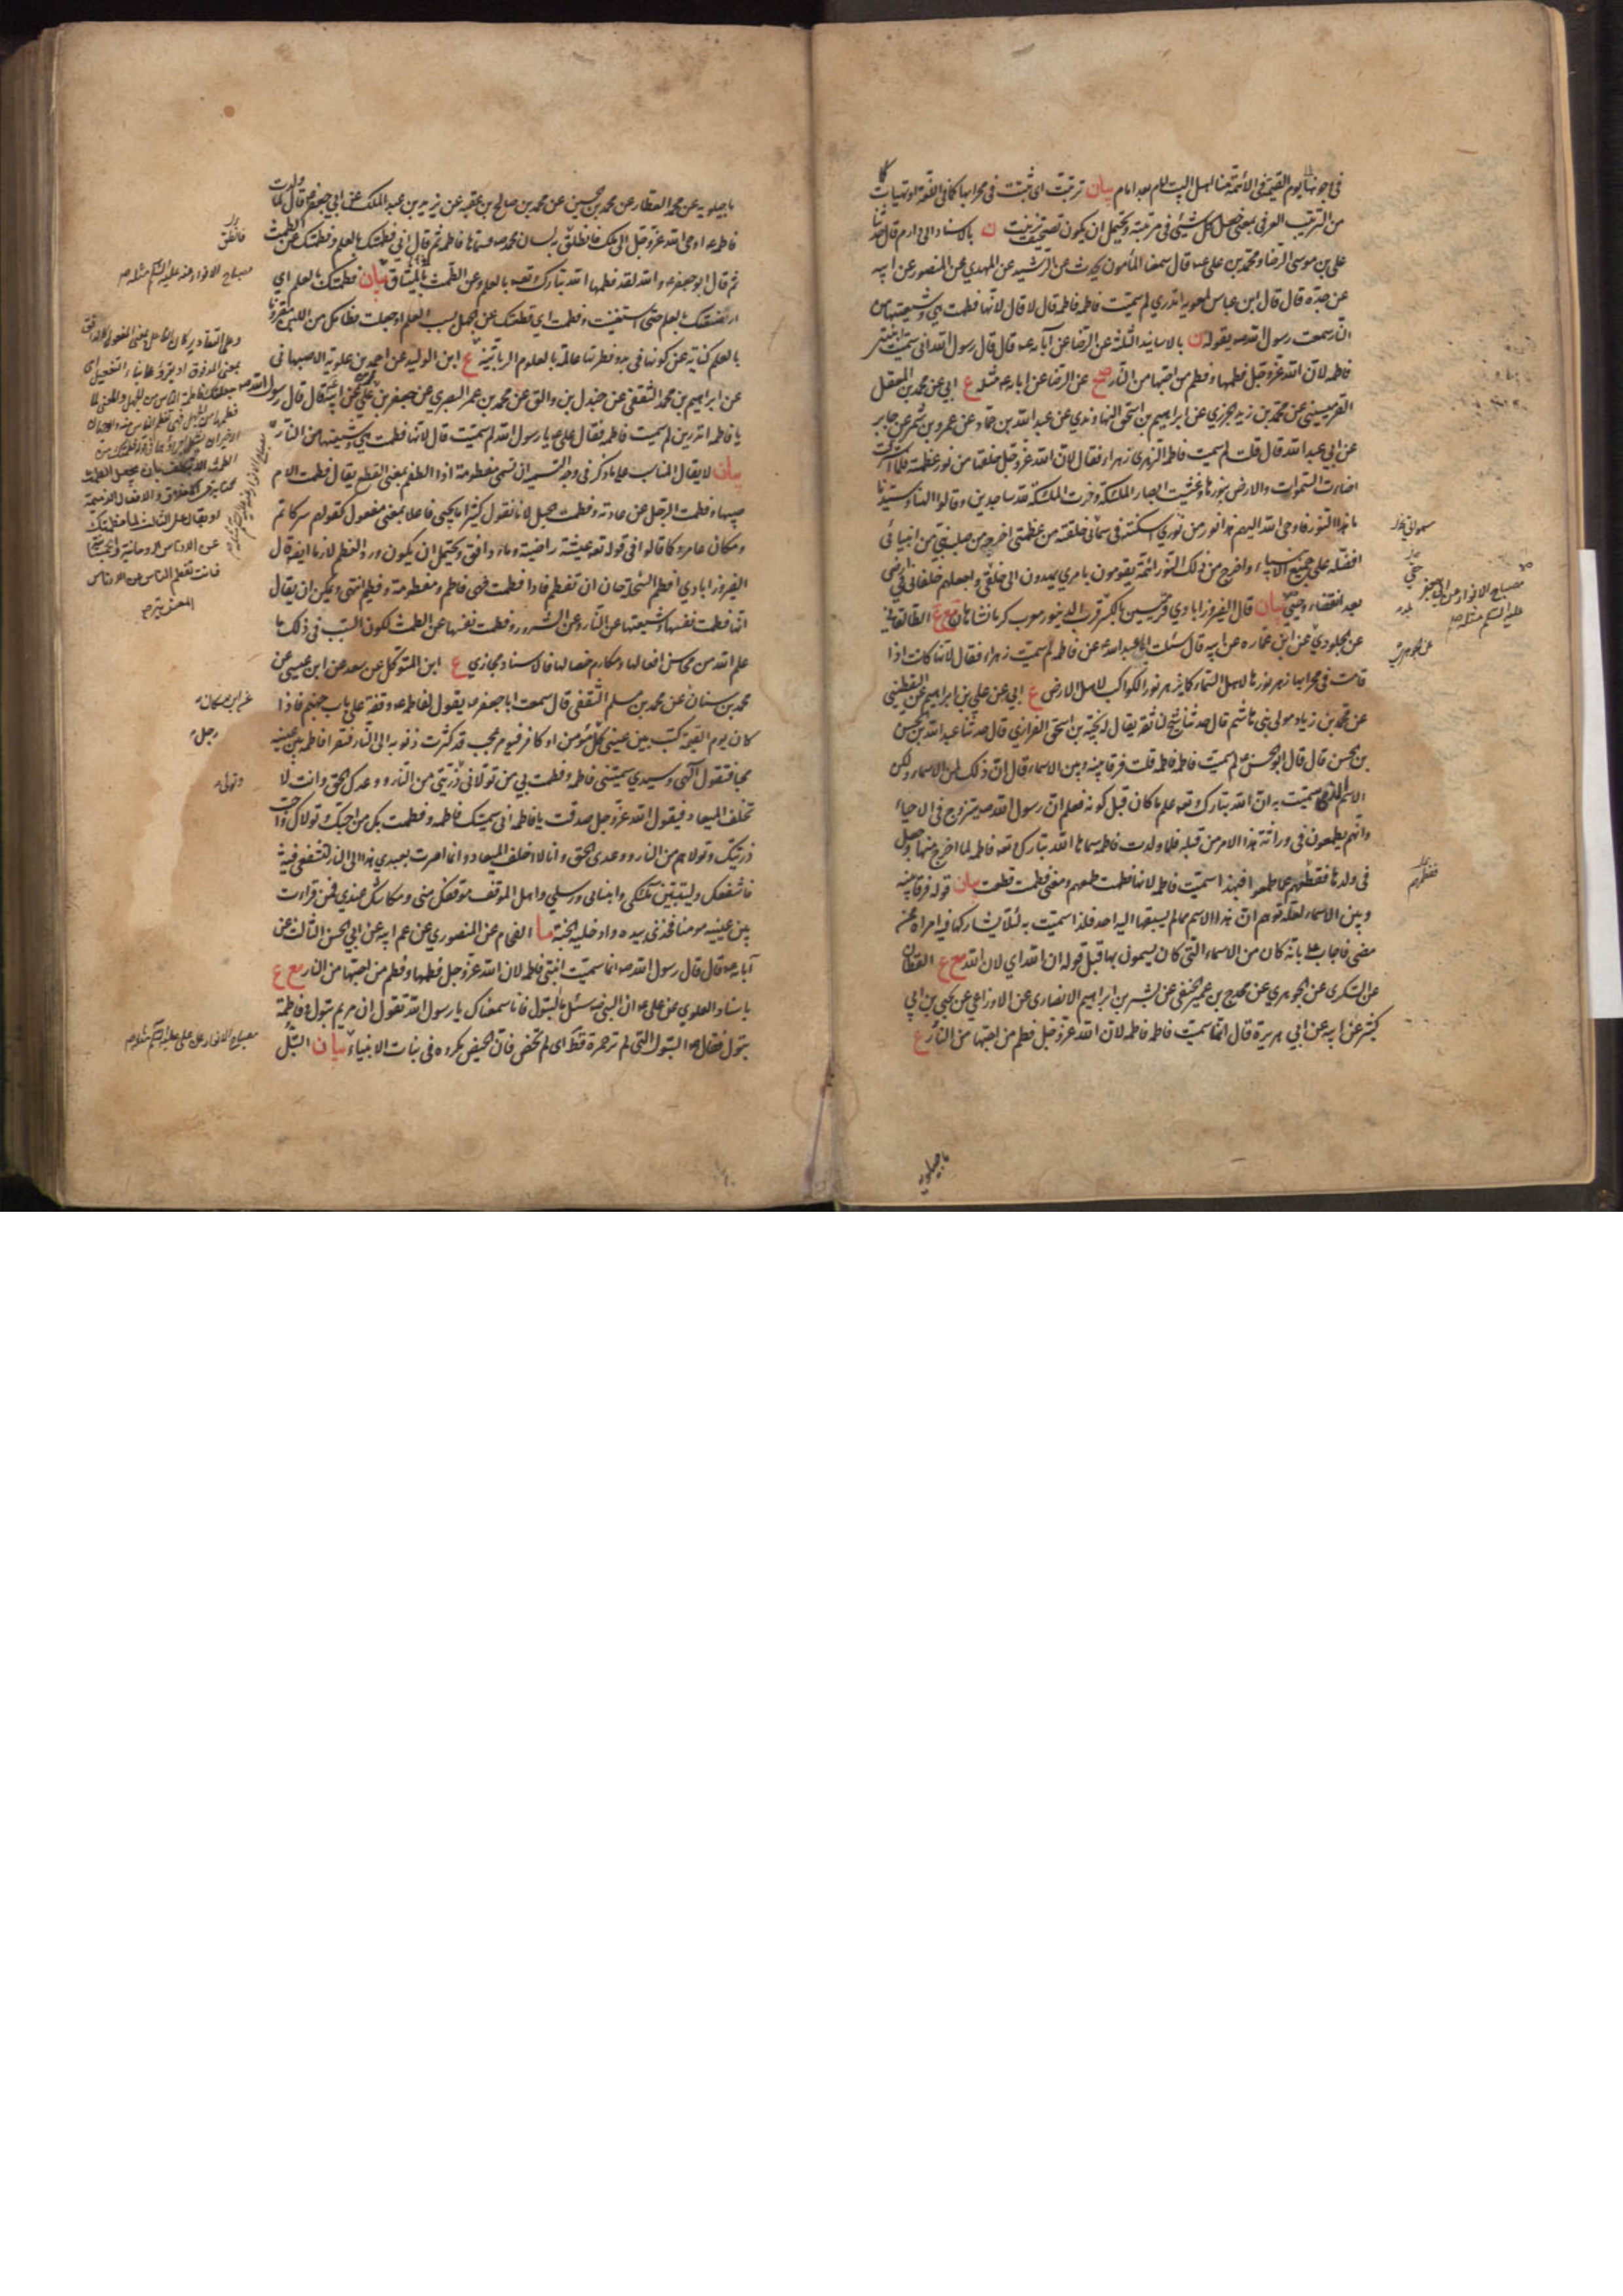 في حزنها يوم القيمة في الأئمة منا اهل البيت امام بعد امام بيان ترتبت اي ثبتت في محرابها كما في اللغة او تهيأت
من الترتيب العرفي بمعنى جعل كل شيئ في مرتبته ويحتمل ان يكون تصحيف تزينت ن بالاسناد الى دارم قال حدثنا
علي بن موسى الرضا ومحمد بن علي ع قالا سمعنا المأمون يحدث عن الرشيد عن المهدي عن المنصور عن ابيه
عن جده قال قال ابن عباس لمعوية اتدري لم سميت فاطمة فاطمة قال لا قال لانها فطمت هي وشيعتها من
النار سمعت رسول الله ص يقوله ن بالاسانيد الثلثة عن الرضا عن آبائه ع قال قال رسول الله اني سميت ابنتي
فاطمة لان الله عز وجل فطمها وفطم من احبها من النار صح عن الرضا عن ابائه ع مثله ع ابي عن محمد بن المعقل
القرميسيني عن محمد بن زيد الجزري عن ابراهيم بن اسحق النهاوندي عن عبد الله بن حماد عن عمرو بن شمر عن جابر
عن ابي عبد الله قال قلت لم سميت فاطمة الزهرى زهراء فقال لان الله عز وجل خلقها من نور عظمته فلما اشرقت
اضاءت السموات والارض بنورها وغشيت ابصار الملئكة وخرت الملئكة لله ساجدين وقالوا الهنا وسيدنا
ما هذا النور فاوحى الله اليهم هذا نور من نوري اسكنته في سمائي خلقته من عظمتي اخرجه من صلب نبي من انبيائي
افضله على جميع الانبياء واخرج من ذلك النور ائمة يقومون بامري يهدون الى خلقي واجعلهم خلفائي في ارضي
بعد انقضاء وحيي بيان قال الفيروزابادي قرميسين بالكسر قرب الدينور معرب كرمانشاهان مع ع الطالقاني
عن الجلودي عن ابن عمارة عن ابيه قال سئلت ابا عبد الله ع عن فاطمة لم سميت زهراء فقال لانها كانت اذا
قامت في محرابها زهر نورها لاهل السماء كما يزهر نور الكواكب لاهل الارض ع ابي عن علي بن ابراهيم عن اليقطيني
عن محمد بن زياد مولى بني هاشم قال حدثنا شيخ لنا ثقة يقال له نجية بن اسحق الفزاري قال حدثنا عبد الله بن الحسن
بن الحسن قال قال ابو الحسن ع لم سميت فاطمة فاطمة قلت فرقا بينه وبين الاسماء قال ان ذلك لمن الاسماء ولكن
الاسم الذي سميت به ان الله تبارك وتعه علم ما كان قبل كونه فعلم ان رسول الله ص يتزوج في الاحياء
وانهم يطمعون في وراثة هذا الامر من قبله فلما ولدت فاطمة سماها الله تبارك وتعه فاطمة لما اخرج منها وجعل
في ولدها فقطعهم عما طمعوا فبهذا سميت فاطمة لانها فطمت طمعهم ومعنى فطمت قطعت بيان قوله فرقا بينه
وبين الاسماء لعله توهم ان هذا الاسم مما لم يسبقها اليه احد فلذا سميت به لئلا يشاركها فيه امراة ممن
مضى فاجاب ع بانه كان من الاسماء التي كان يسمون بها قبل قوله ان الله اي لان الله مع ع القطان
عن السكري عن الجوهري عن مخدج بن عمير الحنفي عن بشر بن ابراهيم الانصاري عن الاوزاعي عن يحيى بن ابي
كثير عن ابيه عن ابي هريرة قال انما سميت فاطمة فاطمة لان الله عز وجل فطم من احبها من النار ع
ماجيلويه
مصباح الانوار عن ابي جعفر
عليه السلام مثله
ماجيلويه عن محمد العطار عن محمد بن الحسين عن محمد بن صالح بن عقبة عن يزيد بن عبد الملك عن ابي جعفر ع قال لما ولدت
فاطمة ع اوحى الله عز وجل الى ملك فانطلق به لسان محمد ص فسماها فاطمة ثم قال اني فطمتك بالعلم وفطمتك عن الطمث
ثم قال ابو جعفر ع والله لقد فطمها الله تبارك وتعه بالعلم وعن الطمث بالميثاق بيان فطمتك بالعلم اي
ارضعتك بالعلم حتى استغنيت وفطمت او قطعتك عن الجهل بسبب العلم او جعلت فطامك من اللبن مقرونا
بالعلم كناية عن كونها في بدو فطرتها عالمة بالعلوم الربانية ع ابن الوليد عن احمد بن علوية الاصبهاني
عن ابراهيم بن محمد الثقفي عن جندل بن والق عن محمد بن عمر البصري عن جعفر بن محمد بن علي عن ابيه قال قال رسول الله ص
يا فاطمة اتدرين لم سميت فاطمة فقال علي ع يا رسول الله لم سميت قال لانها فطمت هي وشيعتها من النار
بيان لا يقال المناسب على ما ذكر في وجه التسمية ان تسمى مفطومة اذ الفطم بمعنى القطع يقال فطمت الام
صبيها وفطمت الرجل عن عادته وفطمت الحبل لانا نقول كثيرا ما يجيئ فاعل بمعنى مفعول كقولهم سر كاتم
ومكان عامر وكما قالوا في قوله تعه عيشة راضية وماء دافق ويحتمل ان يكون ورد الفطم لازما ايضا قال
الفيروزابادي افطم السخلة حان ان تفطم فاذا فطمت فهي فاطم ومفطومة وفطيم انتهى ويمكن ان يقال
انها فطمت نفسها وشيعتها عن النار وعن الشرور وفطمت نفسها عن الطمث لكون السبب في ذلك ما
علم الله من محاسن افعالها ومكارم خصالها فالاسناد مجازي ع ابن المتوكل عن سعد عن ابن عيسى عن
محمد بن سنان عن محمد بن مسلم الثقفي قال سمعت ابا جعفر ع يقول لفاطمة ع وقفة على باب جهنم فاذا
كان يوم القيمة كتب بين عيني كل مؤمن او كافر فيؤمر بمحب قد كثرت ذنوبه الى النار فتقرا فاطمة بين عينيه
محبا فتقول الهي وسيدي سميتني فاطمة وفطمت بي من تولاني وذريتي من النار ووعدك الحق وانت لا
تخلف الميعاد فيقول الله عز وجل صدقت يا فاطمة اني سميتك فاطمة وفطمت بك من احبك وتولاك واحب
ذريتك وتولاهم من النار ووعدي الحق وانا لا اخلف الميعاد وانما امرت بعبدي هذا الى النار لتشفعي فيه
فاشفعك وليتبين لملئكتي وانبيائي ورسلي واهل الموقف موقفك مني ومكانتك عندي فمن قرأت
بين عينيه مومنا فخذي بيده وادخليه الجنة ما الفحام عن المنصوري عن عم ابيه عن ابي الحسن الثالث عن
آبائه ع قال قال رسول الله ص انما سميت ابنتي فاطمة لان الله عز وجل فطمها وفطم من احبها من النار مع ع
باسناد العلوي عن علي ع ان النبي ص سئل ما البتول فانا سمعناك يا رسول الله تقول ان مريم بتول وفاطمة
بتول فقال ص البتول التي لم تر حمرة قط اى لم تحض فان الحيض مكروه في بنات الانبياء بيان البتل
فانطق
مصباح الانوار عنه عليه السلام مثله
عن ابن مسكان
رجل
وتولى
مصباح الانوار عن علي عليه السلام مثله